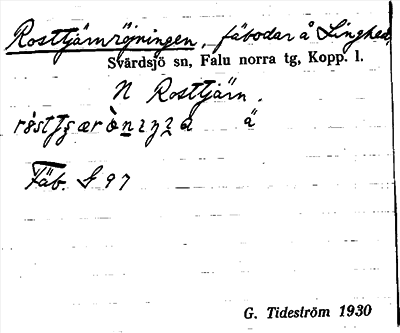 Rosttjärnröjningen, fäbodar å Linghed,
Svärdsjö sn, Falu norra tg, Kopp. l.
N Rosttjärn.
ä
Fäb. S 97
G. Tideström 1930